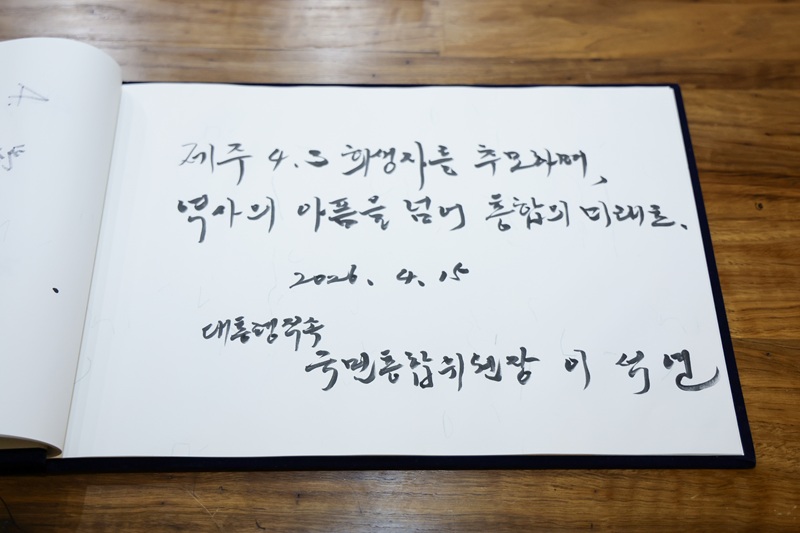 제주 4.3 희생자를 추모하며,
역사의 아픔을 넘어 통합의 미래로.
2026. 4. 15
대통령직속
국민통합위원장 이석연